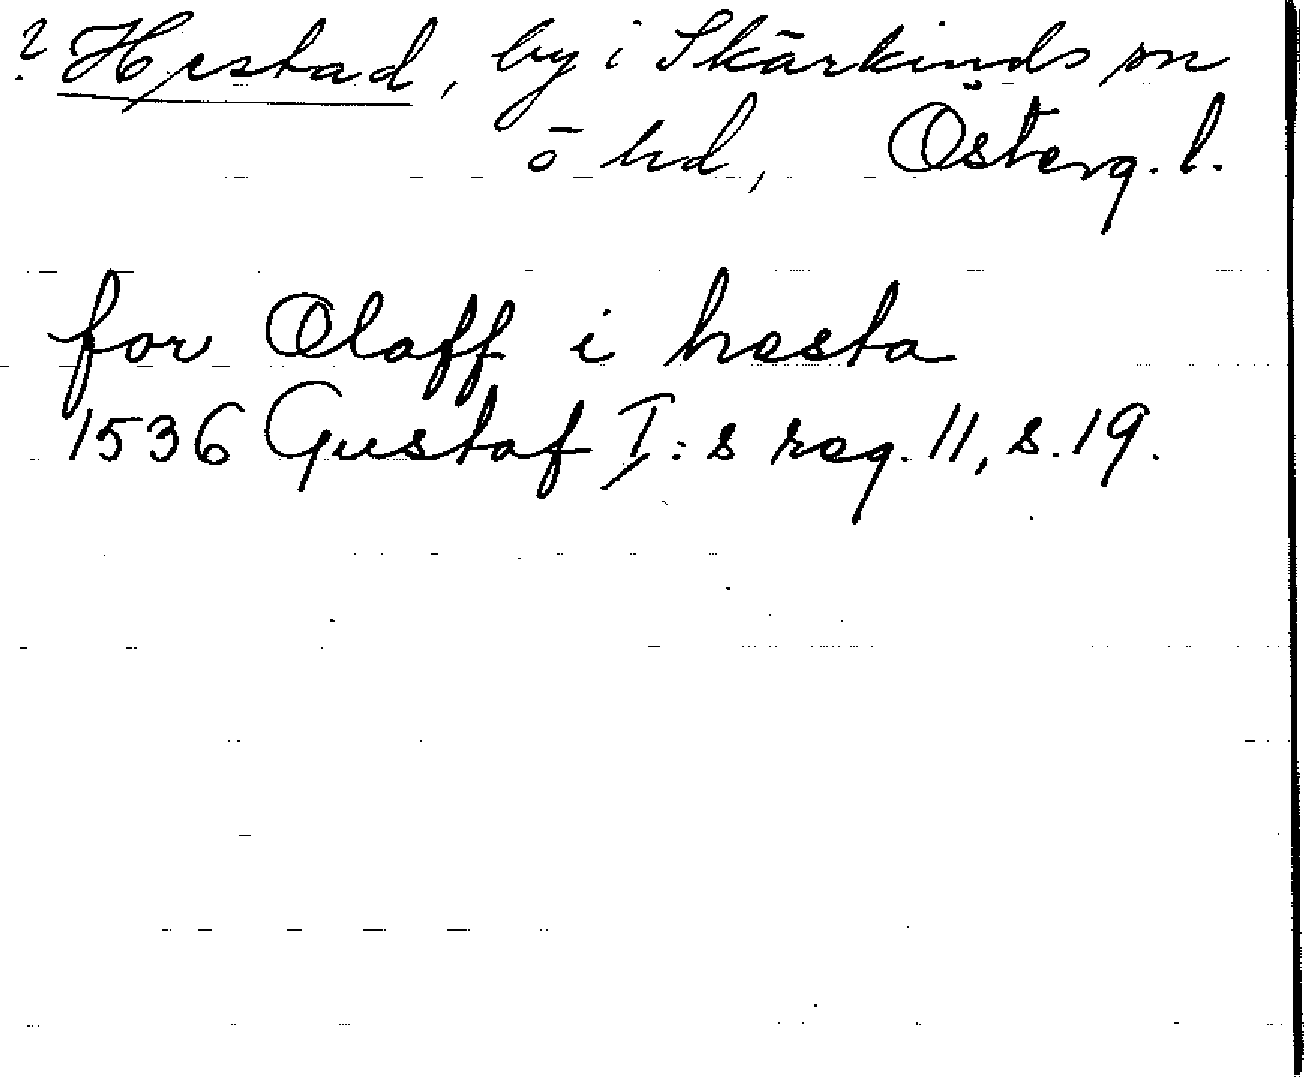 ? Hestad, by i Skärkinds sn
ö hd, Österg. l.
for Olaff i hesta
1536 Gustaf I:s reg. 11, s. 19.